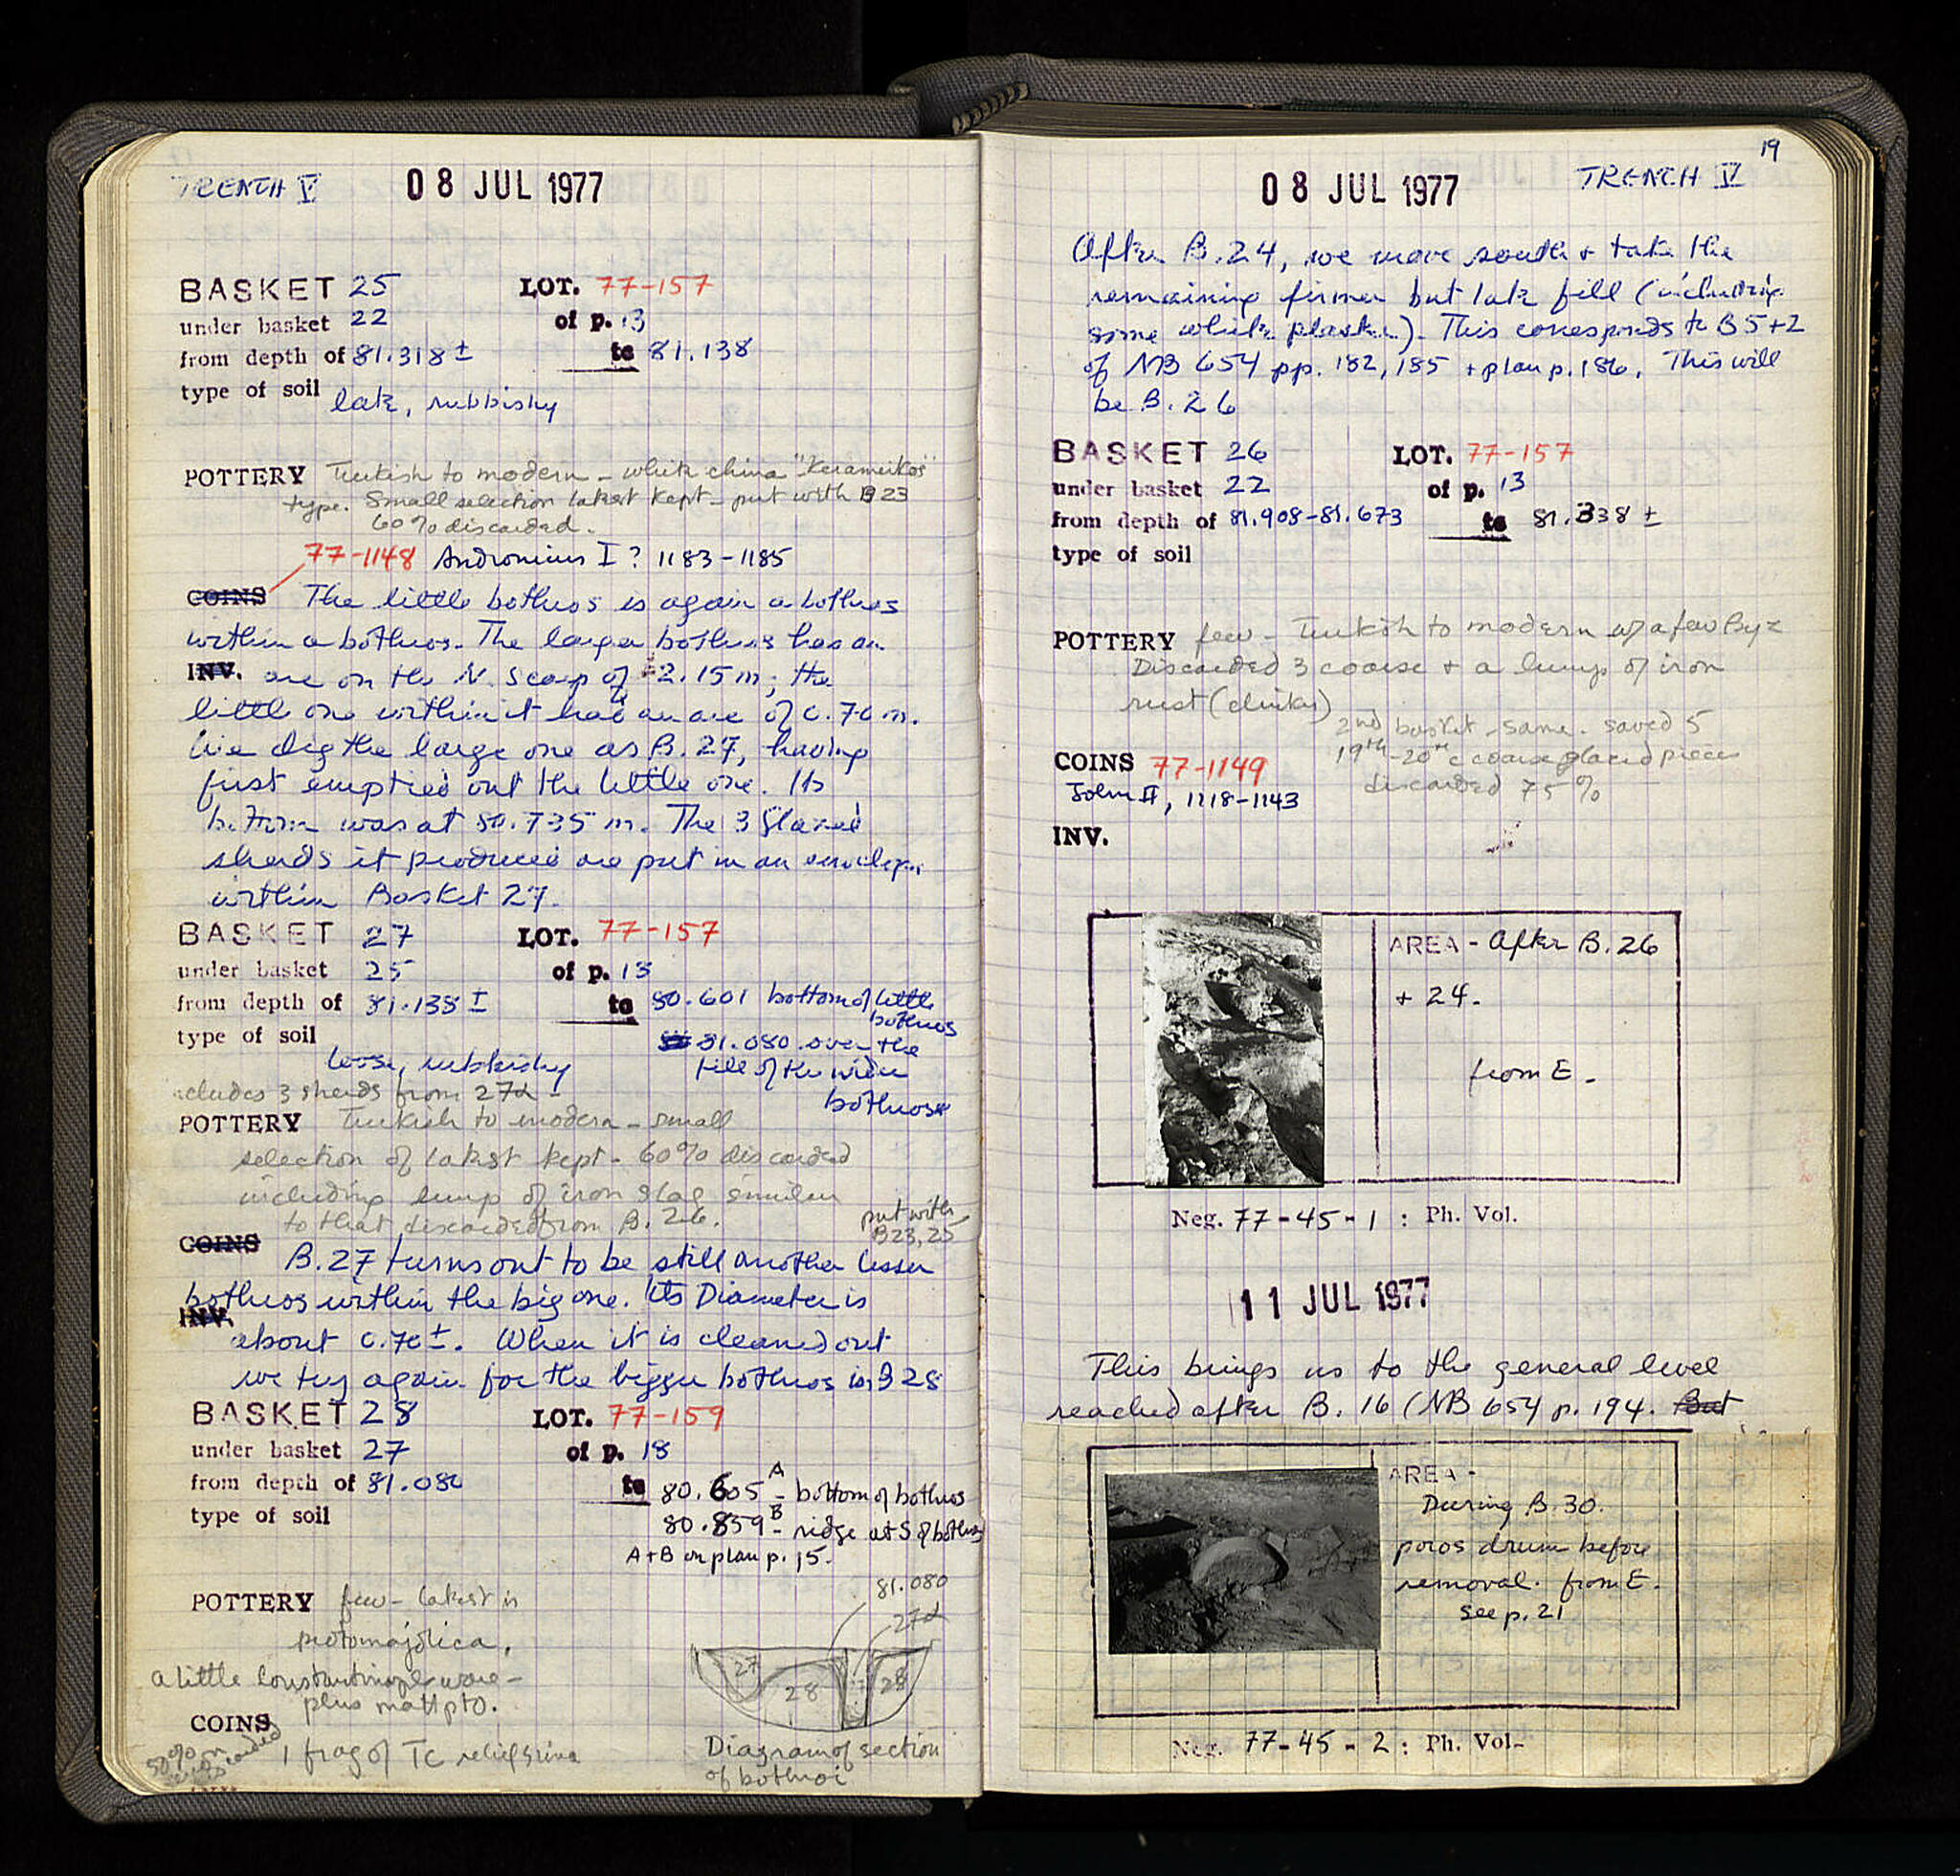 TRENCH V 08 JUL 1977
BASKET 25 LOT. 77-157
under basket 22 of p. 13
from depth of 81.318 ± to 81.138
type of soil late, rubbishy
POTTERY Turkish to modern - white china "Kerameikos"
type. Small selection latest kept - put with B 23
60% discarded.
77-1148 Andronicus I ? 1183-1185
COINS The little bothros is again a bothros
within a bothros. The larger bothros has an
INV. arc on the N. scarp of 2.15 m; the
little one within it had an arc of 0.70 m.
We dig the large one as B. 27, having
first emptied out the little one. Its
bottom was at 80.735 m. The 3 glazed
sherds it produced are put in an envelope
within Basket 27.
BASKET 27 LOT. 77-157
under basket 25 of p. 13
from depth of 81.138 ± to 80.601 bottom of little
bothros
type of soil 81.080 over the
loose, rubbishy fill of the wider
bothros
includes 3 sherds from 27α -
POTTERY Turkish to modern - small
selection of latest kept - 60% discarded
including lump of iron slag similar
to that discarded from B. 26. put with
B23, 25
COINS B. 27 turns out to be still another lesser
bothros within the big one. Its Diameter is
INV.
about 0.70 ±. When it is cleaned out
we try again for the bigger bothros in B 28
BASKET 28 LOT. 77-159
under basket 27 of p. 18
from depth of 81.080 to 80.605 A - bottom of bothros
type of soil 80.859 B - ridge at S of bothros
A+B on plan p. 15.
POTTERY few - latest is
protomajolica,
a little Constantinople ware -
plus matt ptd.
COINS
50%
discarded
1 frag of TC relief
81.080
27α
27 28 28
Diagram of section
of bothroi
19
08 JUL 1977 TRENCH V
After B. 24, we move south + take the
remaining firmer but late fill (including
some white plaster). This corresponds to B 5+2
of NB 654 pp. 182, 185 + plan p. 186. This will
be B. 26
BASKET 26 LOT. 77-157
under basket 22 of p. 13
from depth of 81.908-81.673 to 81.338 ±
type of soil
POTTERY few - Turkish to modern w/ a few Byz
Discarded 3 coarse + a lump of iron
rust (clinker)
2nd basket - same. saved 5
19th-20th c coarse glazed pieces
discarded 75%
COINS 77-1149
John II, 1118-1143
INV.
AREA - After B. 26
+ 24.
from E.
Neg. 77-45-1 : Ph. Vol.
11 JUL 1977
This brings us to the general level
reached after B. 16 (NB 654 p. 194. But
AREA -
During B. 30.
poros drum before
removal. from E.
see p. 21
Neg. 77-45-2 : Ph. Vol.